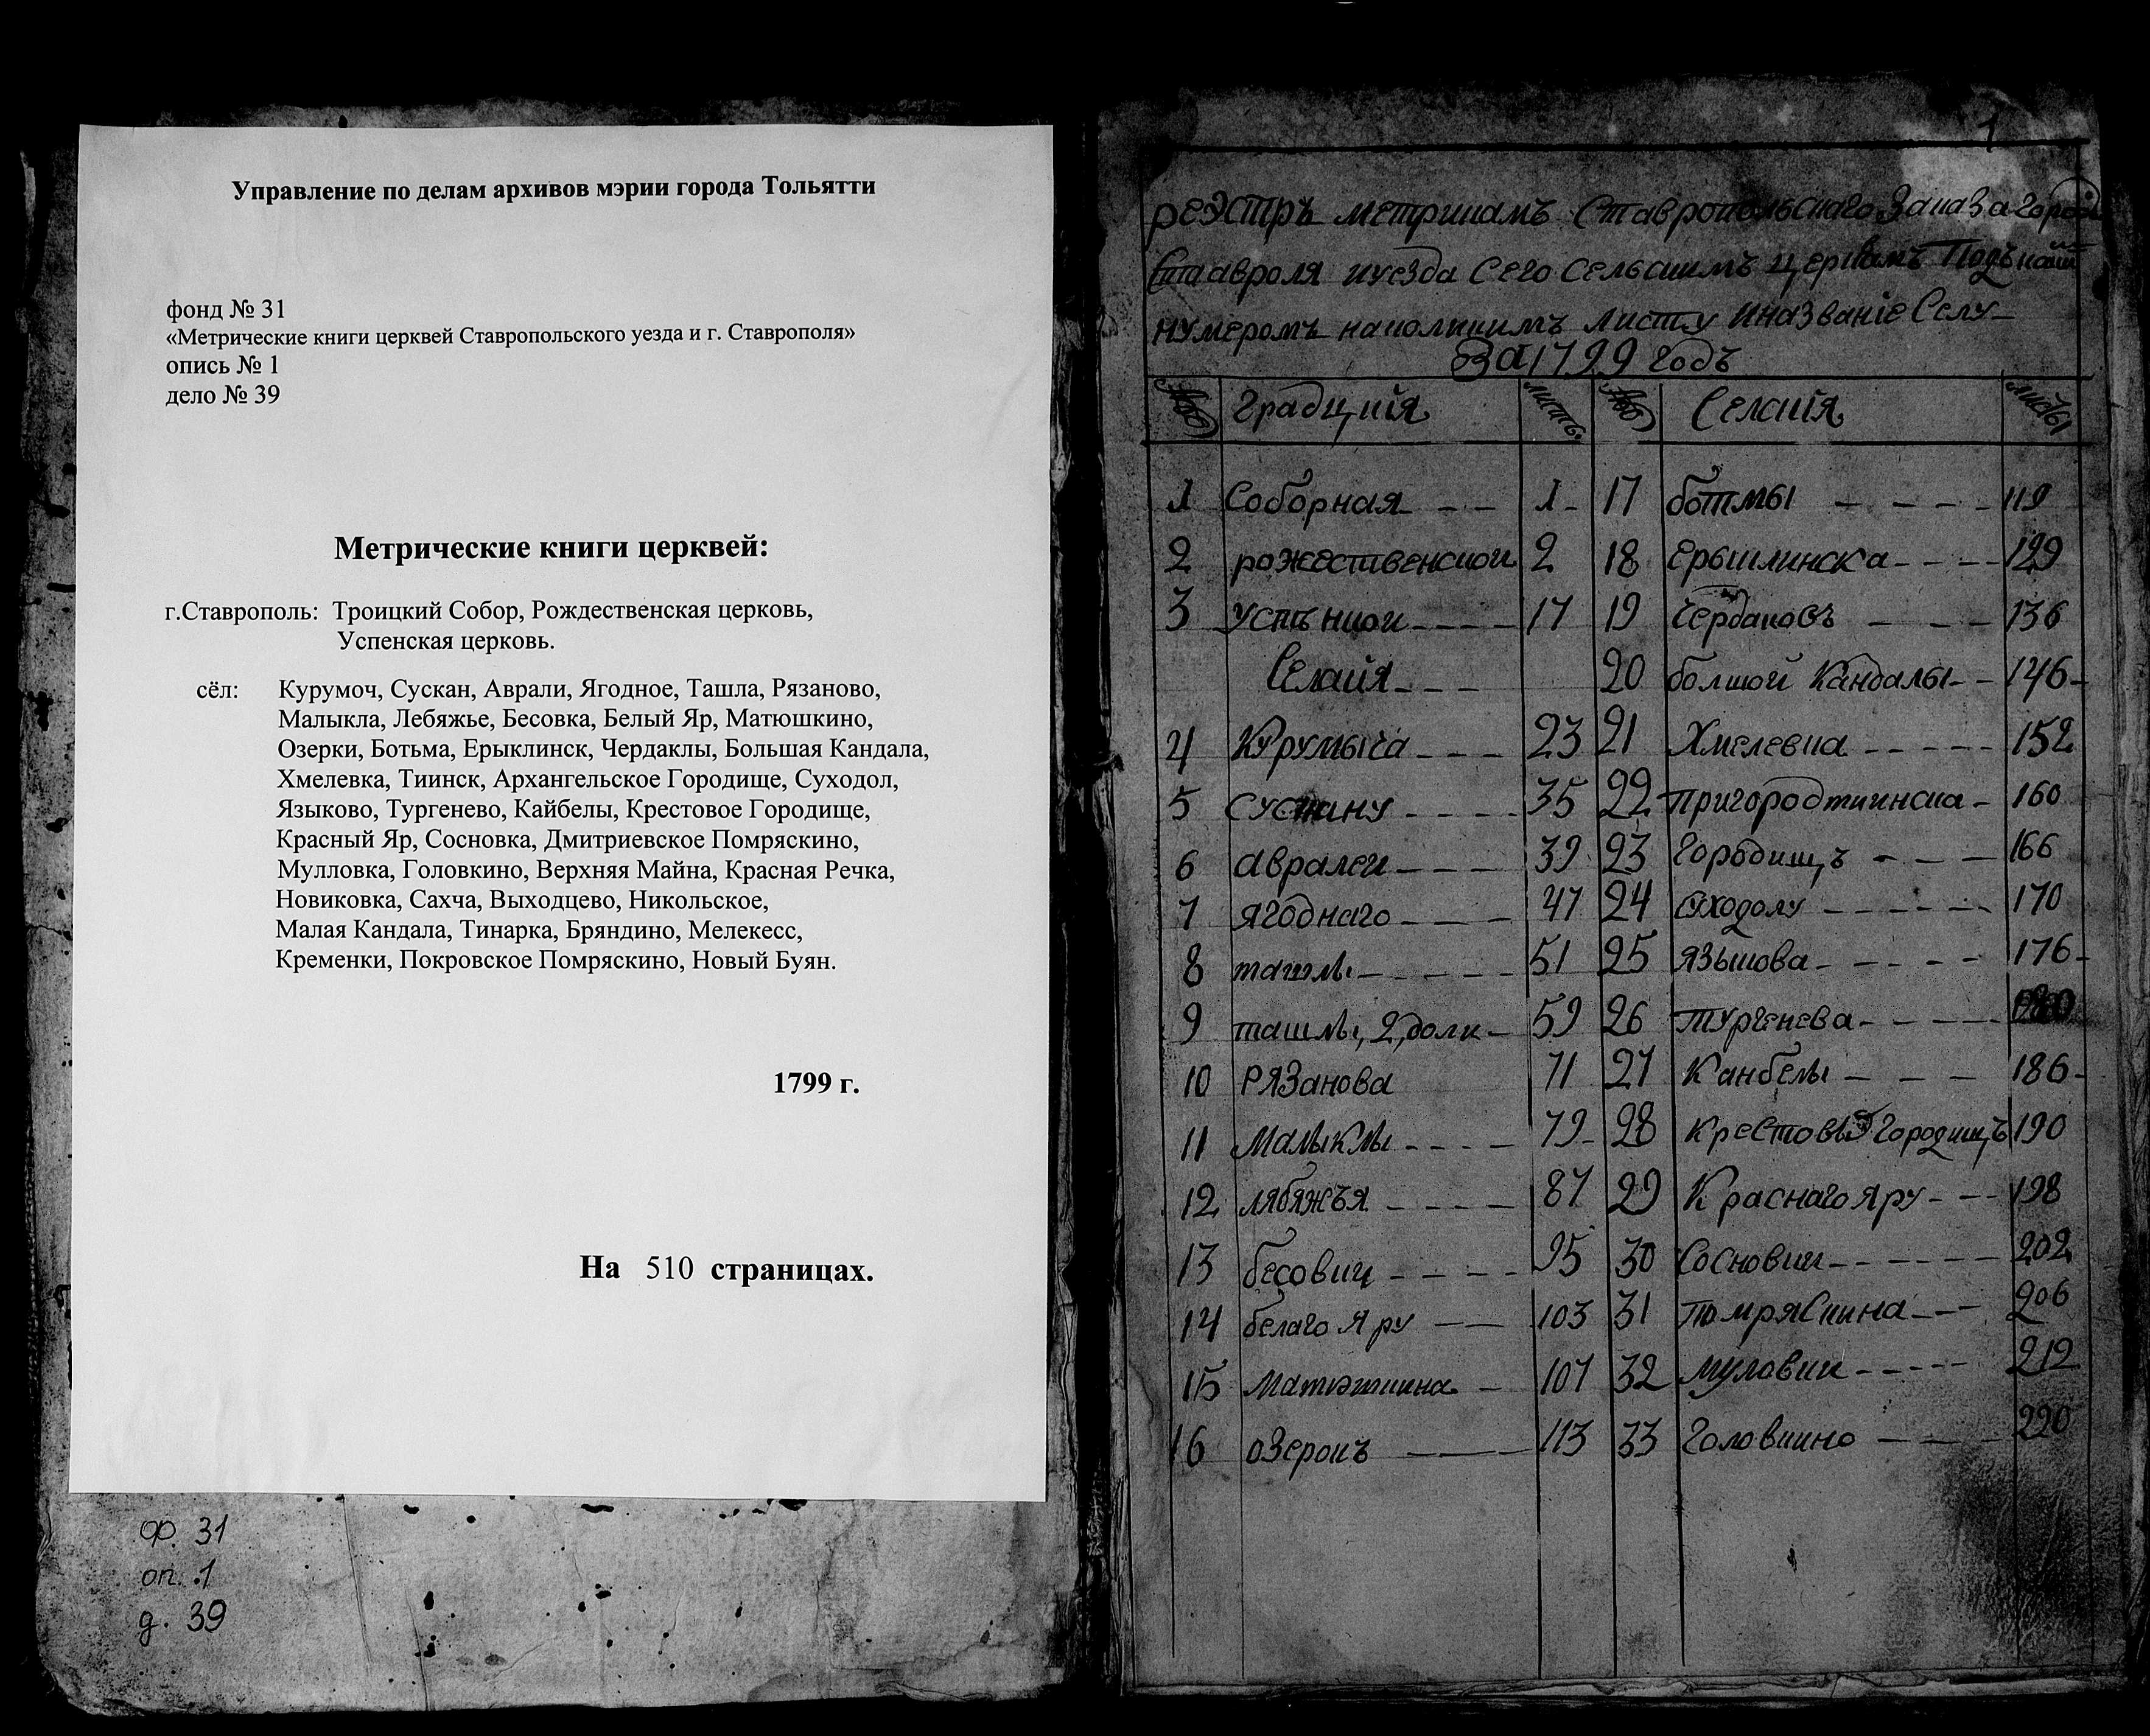 Управление по делам архивов мэрии города Тольятти
фонд № 31
«Метрические книги церквей Ставропольского уезда и г. Ставрополя»
опись № 1
дело № 39
Метрические книги церквей:
г.Ставрополь: Троицкий Собор, Рождественская церковь,
Успенская церковь.
сёл: Курумоч, Сускан, Аврали, Ягодное, Ташла, Рязаново,
Малыкла, Лебяжье, Бесовка, Белый Яр, Матюшкино,
Озерки, Ботьма, Ерыклинск, Чердаклы, Большая Кандала,
Хмелевка, Тиинск, Архангельское Городище, Суходол,
Языково, Тургенево, Кайбелы, Крестовое Городище,
Красный Яр, Сосновка, Дмитриевское Помряскино,
Мулловка, Головкино, Верхняя Майна, Красная Речка,
Новиковка, Сахча, Выходцево, Никольское,
Малая Кандала, Тинарка, Бряндино, Мелекесс,
Кременки, Покровское Помряскино, Новый Буян.
1799 г.
На 510 страницах.
ф. 31
оп. 1
д. 39
1
реэстръ метрикамъ Ставропольскаго Заказа
Ставроля иуезда Сего Сельскимъ церквамъ Подъ
нумеромъ наколикимъ Листу Иназваніе Селу
За 1799 годъ
Градцкія листы Селскія листы
1 Соборная 1 17 ботмы 119
2 рожественской 2 18 Ерыклинска 129
3 17 19 Чердаковъ 136
Селскія 20 болшой Кандалы 146
4 Курумыча 23 21 Хмелевка 152
5 Сускану 35 22 пригородтиинска 160
6 авралей 39 23 Городищъ 166
7 ягоднаго 47 24 Суходолу 170
8 ташлы 51 25 языкова 176
9 ташлы, 2, долк 59 26 тургенева
10 Рязанова 71 27 Канбелы 186
11 Малыклы 79 28 Крестовы Городищъ 190
12 лябяжъя 87 29 Краснаго яру 198
13 бесовки 95 30 Сосновки 202
14 белаго яру 103 31 помряскина 206
15 Матюшкина 107 32 муловки 212
16 озерокъ 113 33 Головкино 220